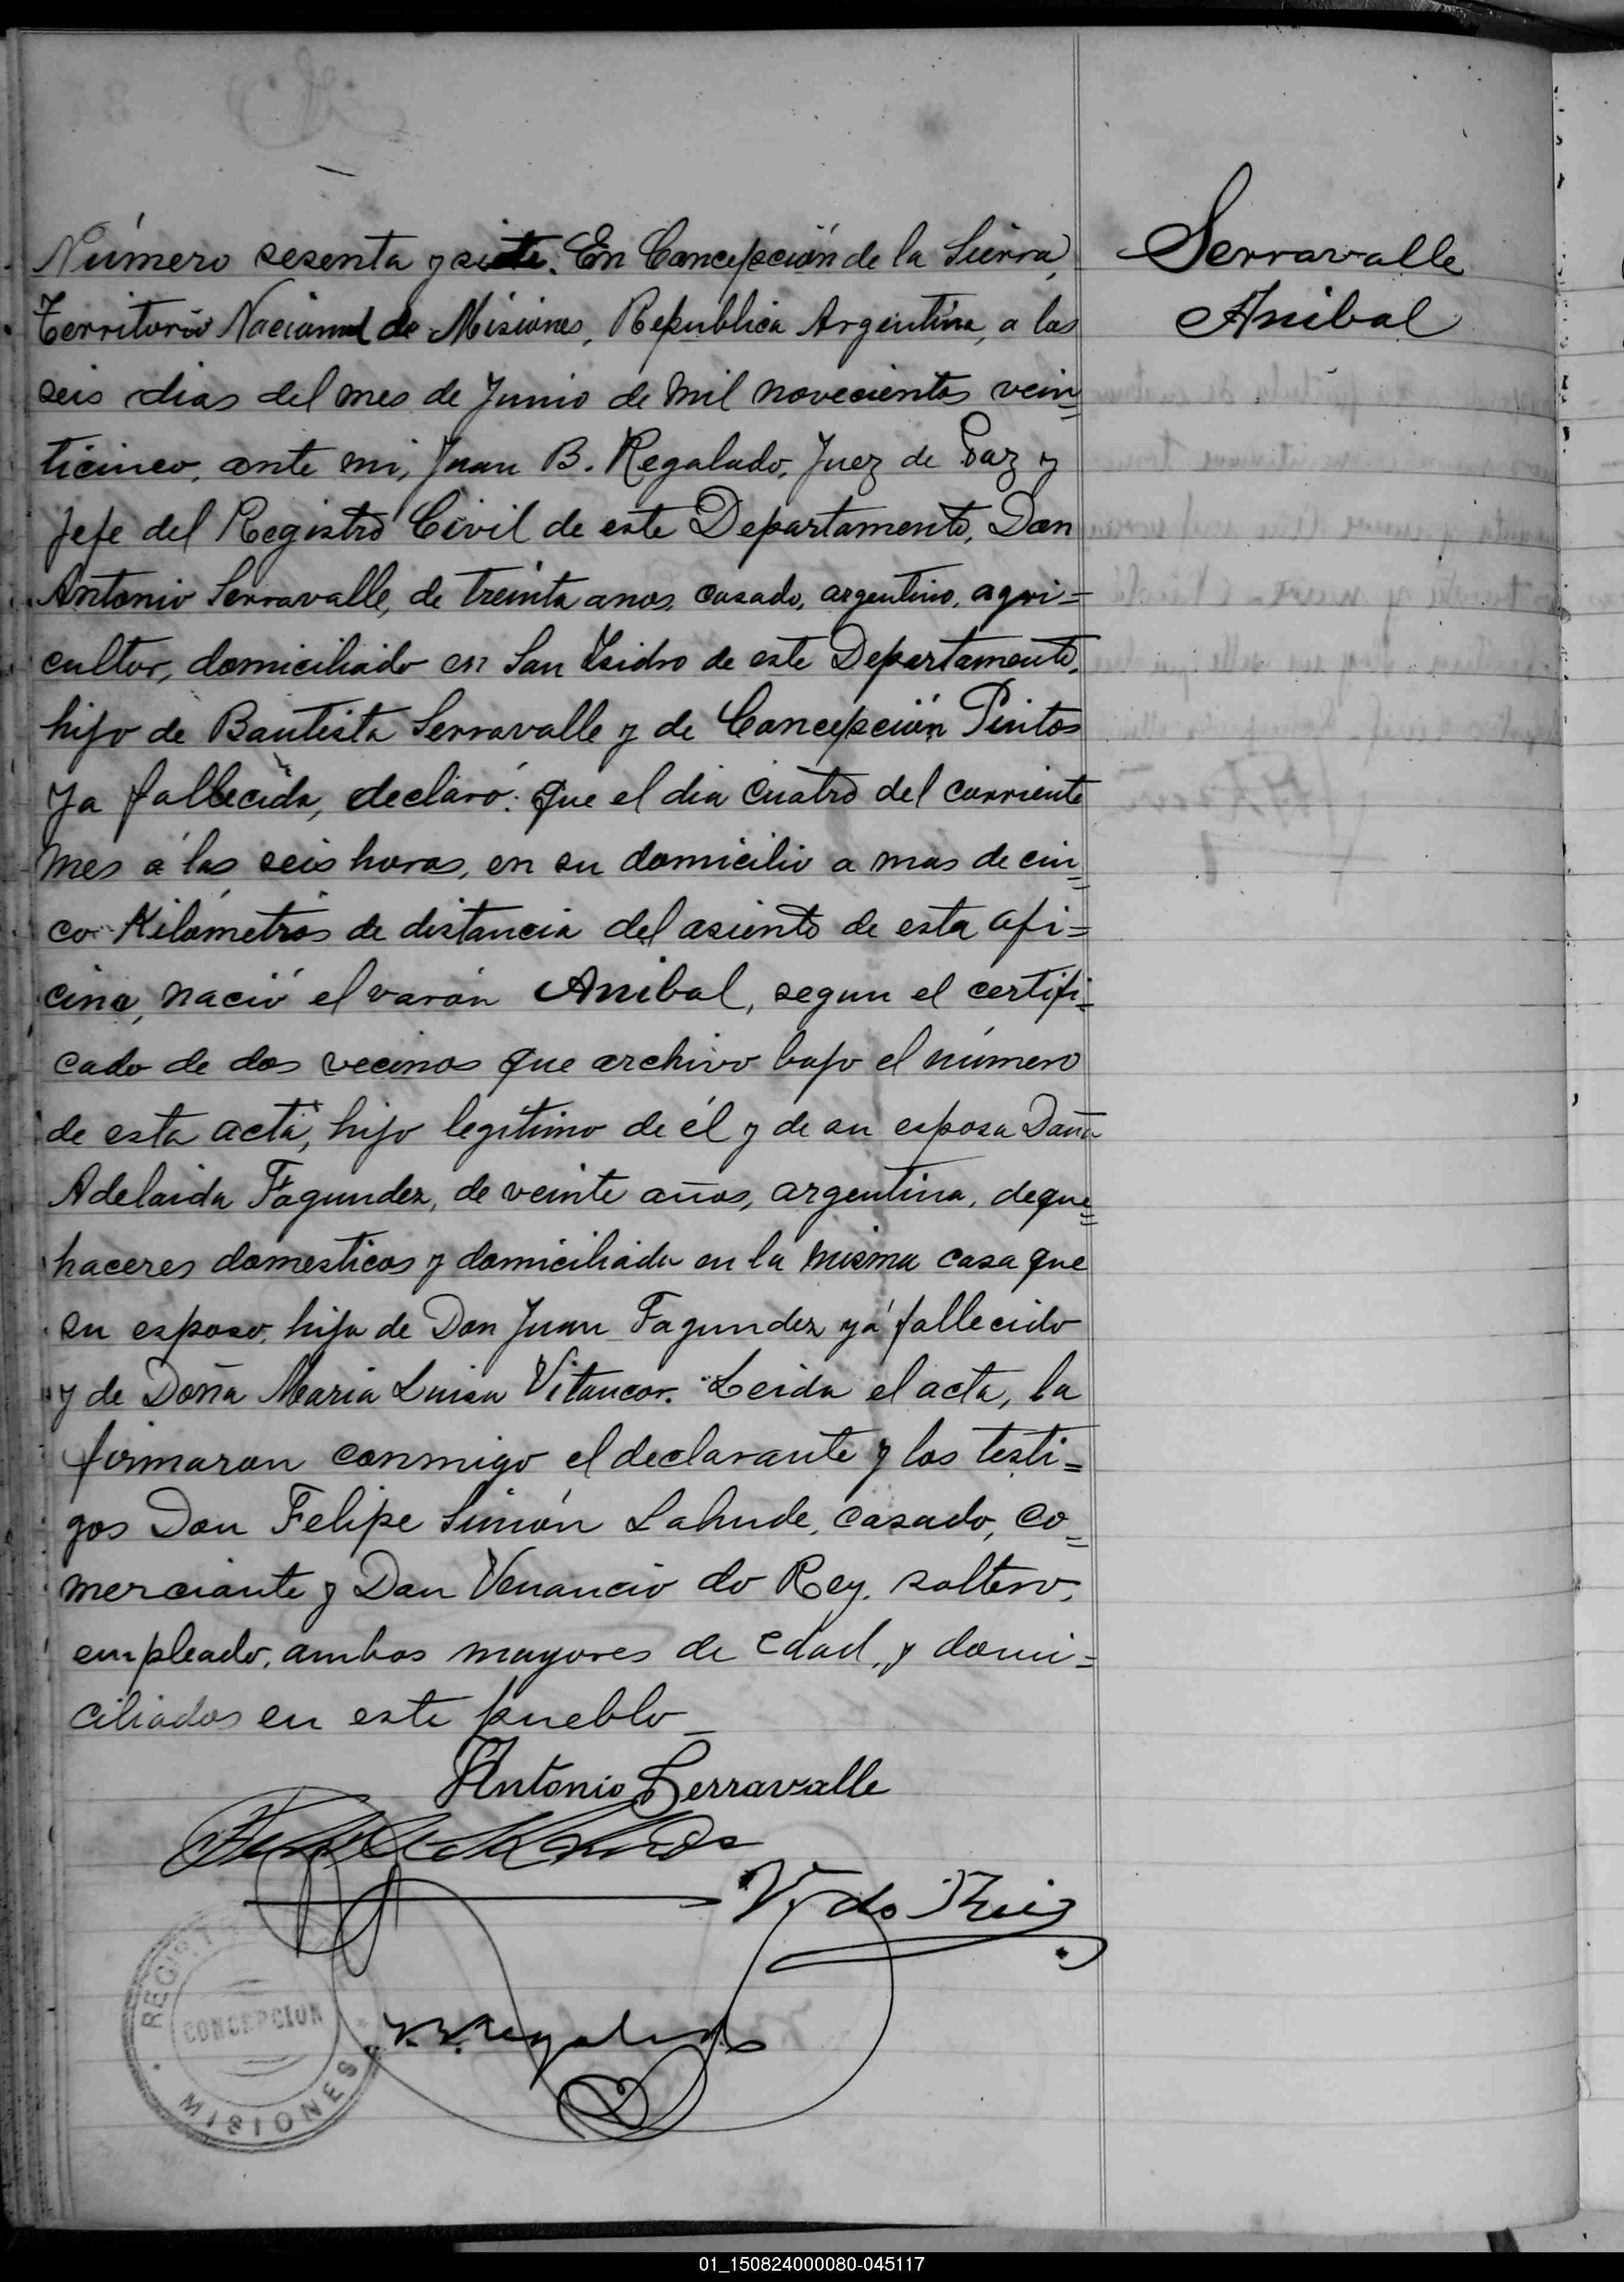 Serravalle
Anibal
Número sesenta y siete. En Concepción de la Sierra,
Territorio Nacional de Misiones, Republica Argentina, a los
seis dias del mes de Junio de mil novecientos vein=
ticinco, ante mi, Juan B. Regalado, Juez de Paz y
Jefe del Registro Civil de este Departamento, Don
Antonio Serravalle, de treinta anos, casado, argentino, agri=
cultor, domiciliado en San Isidro de este Departamento,
hijo de Bautista Serravalle y de Concepción Pintos
ya fallecida, declaró: que el dia cuatro del corriente
mes a las seis horas, en su domicilio a mas de cin=
co Kilómetros de distancia del asiento de esta ofi=
cina, nació el varón Anibal, segun el certifi=
cado de dos vecinos que archivo bajo el número
de esta acta, hijo legitimo de él y de su esposa Doña
Adelaida Fagundez, de veinte años, argentina, de que=
haceres domesticos y domiciliada en la misma casa que
su esposo, hija de Don Juan Fagundez yá fallecido
y de Doña Maria Luisa Vitancor. Leida el acta, la
firmaron conmigo el declarante y los testi=
gos Don Felipe Simón Lahude, casado, co=
merciante y Don Venancio do Rey, soltero,
empleado, ambos mayores de edad, y domi=
ciliados en este pueblo
Antonio Serravalle
V. do Rey
J. B. Regalado
REGIS
CONCEPCION
MISIONES
01_150824000080-045117